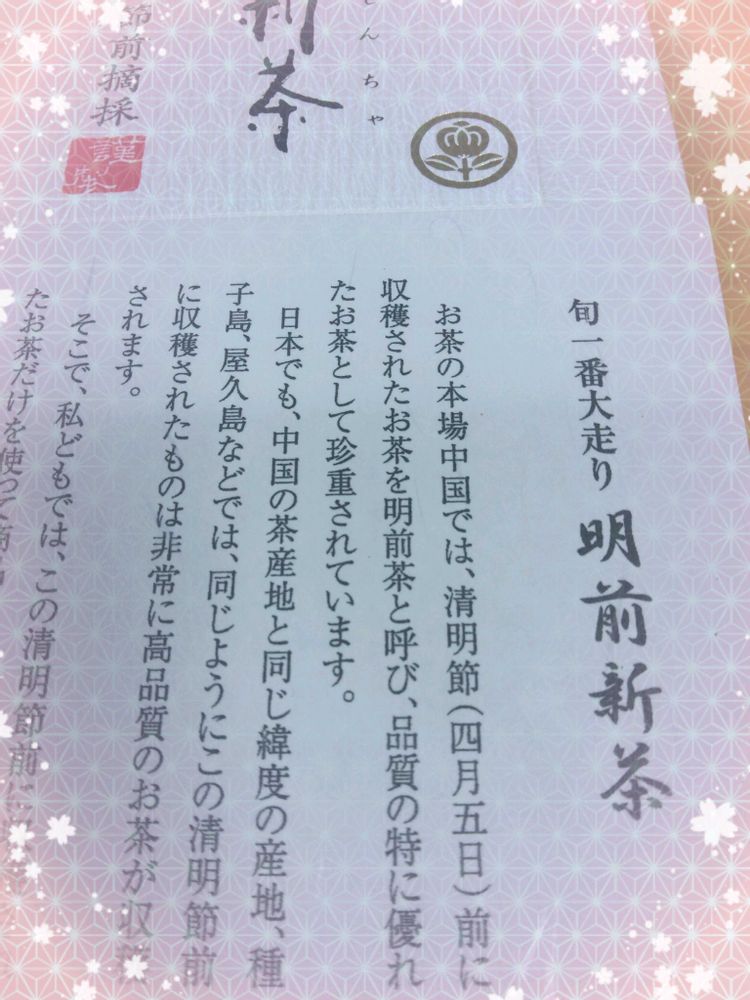 新茶
んちゃ
節前摘採
謹製
旬一番大走り 明前新茶
お茶の本場中国では、清明節(四月五日)前に
収穫されたお茶を明前茶と呼び、品質の特に優れ
たお茶として珍重されています。
日本でも、中国の茶産地と同じ緯度の産地、種
子島、屋久島などでは、同じようにこの清明節前
に収穫されたものは非常に高品質のお茶が収穫
されます。
そこで、私どもでは、この清明節前に
たお茶だけを使って